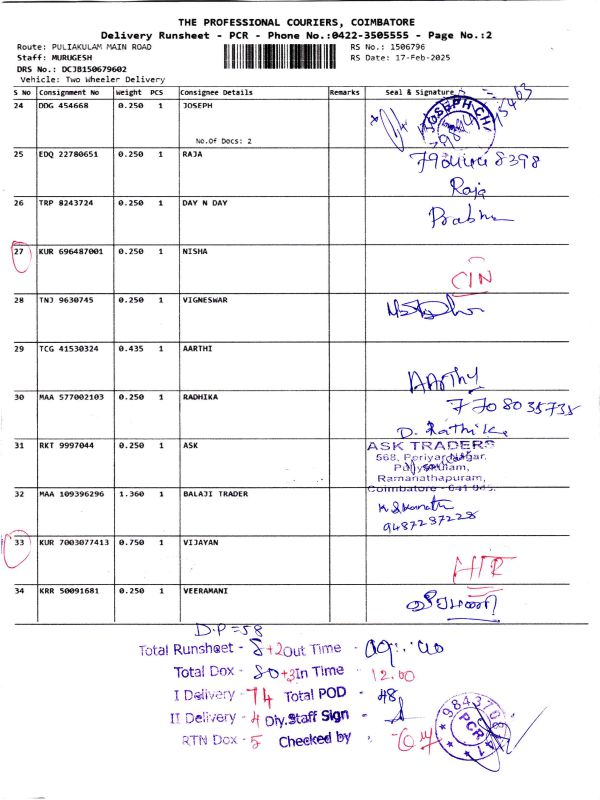 THE PROFESSIONAL COURIERS, COIMBATORE
Delivery Runsheet - PCR - Phone No.:0422-3505555 - Page No.:2
Route: PULIAKULAM MAIN ROAD RS No.: 1506796
Staff: MURUGESH RS Date: 17-Feb-2025
DRS No.: DCJB150679602
Vehicle: Two Wheeler Delivery
S No Consignment No Weight PCS Consignee Details Remarks Seal & Signature
24 DDG 454668 0.250 1 JOSEPH
No.Of Docs: 2
25 EDQ 22780651 0.250 1 RAJA
Raja
26 TRP 8243724 0.250 1 DAY N DAY Prabhu
27 KUR 696487001 0.250 1 NISHA
CIN
28 TNJ 9630745 0.250 1 VIGNESWAR
29 TCG 41530324 0.435 1 AARTHI
AARTHY
7708035735
30 MAA 577002103 0.250 1 RADHIKA
D. Rathika
31 RKT 9997044 0.250 1 ASK ASK TRADERS
568, Periyar Nagar,
Puliyakulam,
Ramanathapuram,
Coimbatore - 641 045.
32 MAA 109396296 1.360 1 BALAJI TRADER
9487237228
33 KUR 7003077413 0.750 1 VIJAYAN
34 KRR 50091681 0.250 1 VEERAMANI வீரமணி
D.P = 58
Total Runsheet - 8+2 Out Time -
Total Dox - 80+3 In Time - 12.00
I Delivery - 74 Total POD - 48
II Delivery - 4 Dly.Staff Sign -
RTN Dox - 5 Checked by
PCR